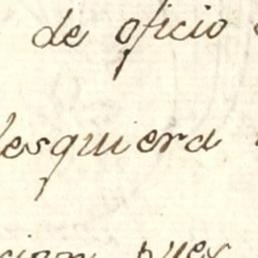 de oficio
lesquiera
cion pues